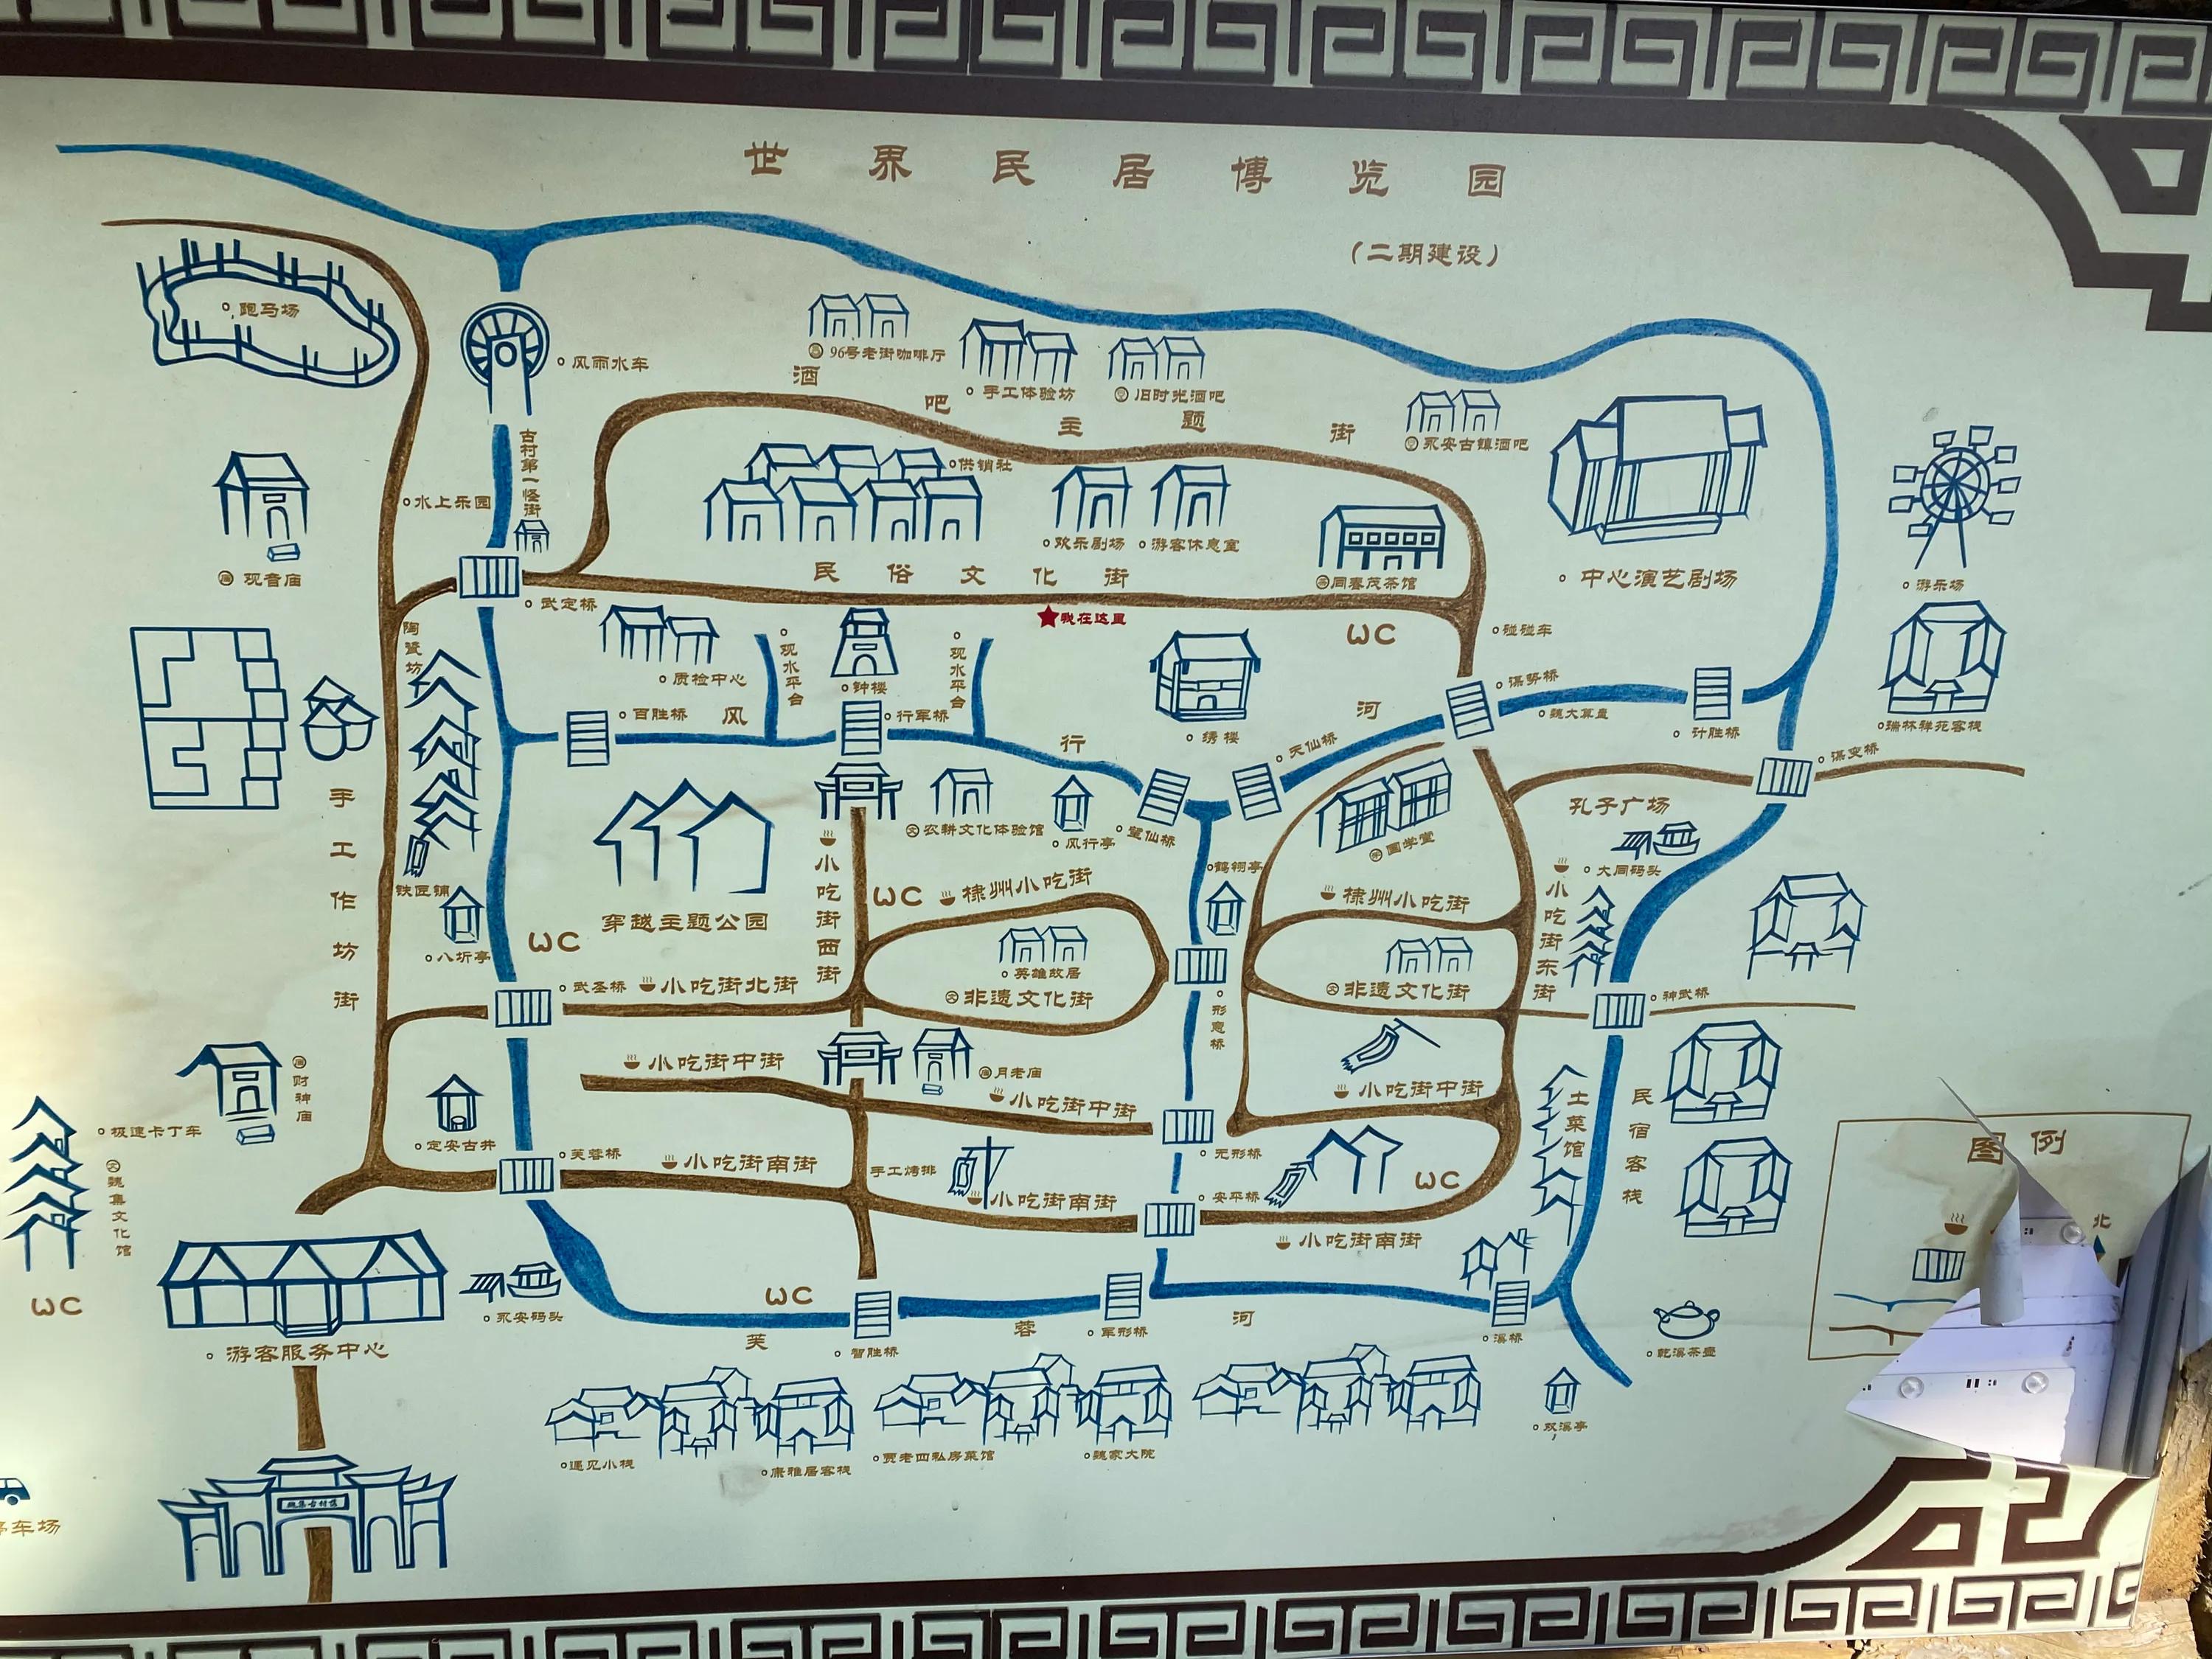 世界民居博览园
（二期建设）
跑马场
风雨水车
96号老街咖啡厅
手工体验坊
旧时光酒吧
永安古镇酒吧
酒吧主题街
古村第一怪街
水上乐园
供销社
欢乐剧场
游客休息室
同春茂茶馆
中心演艺剧场
游乐场
观音庙
民俗文化街
武定桥
我在这里
WC
碰碰车
陶瓷坊
质检中心
观水平台
钟楼
观水平台
绣楼
谋势桥
魏大算盘
计胜桥
瑞林祥苑客栈
百胜桥
行军桥
风行河
天仙桥
谋变桥
手工作坊街
农耕文化体验馆
风行亭
国学堂
孔子广场
大同码头
铁匠铺
小吃街西街
WC
棣州小吃街
鹤翎亭
棣州小吃街
小吃街东街
穿越主题公园
八圻亭
WC
英雄故居
非遗文化街
非遗文化街
武圣桥
小吃街北街
形意桥
神武桥
财神庙
小吃街中街
月老庙
小吃街中街
小吃街中街
土菜馆
民宿客栈
极速卡丁车
魏集文化馆
定安古井
芙蓉桥
小吃街南街
手工烤排
小吃街南街
无形桥
安平桥
WC
小吃街南街
图例
北
WC
游客服务中心
永安码头
WC
芙蓉河
智胜桥
军形桥
溪桥
乾溪茶壶
双溪亭
遇见小栈
康雅居客栈
贾老四私房菜馆
魏家大院
魏集古村落
车场